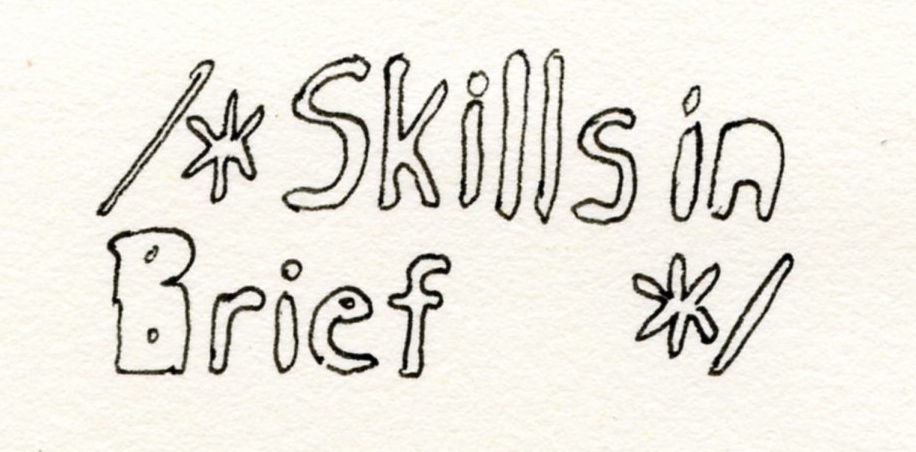 /* Skills in
Brief */